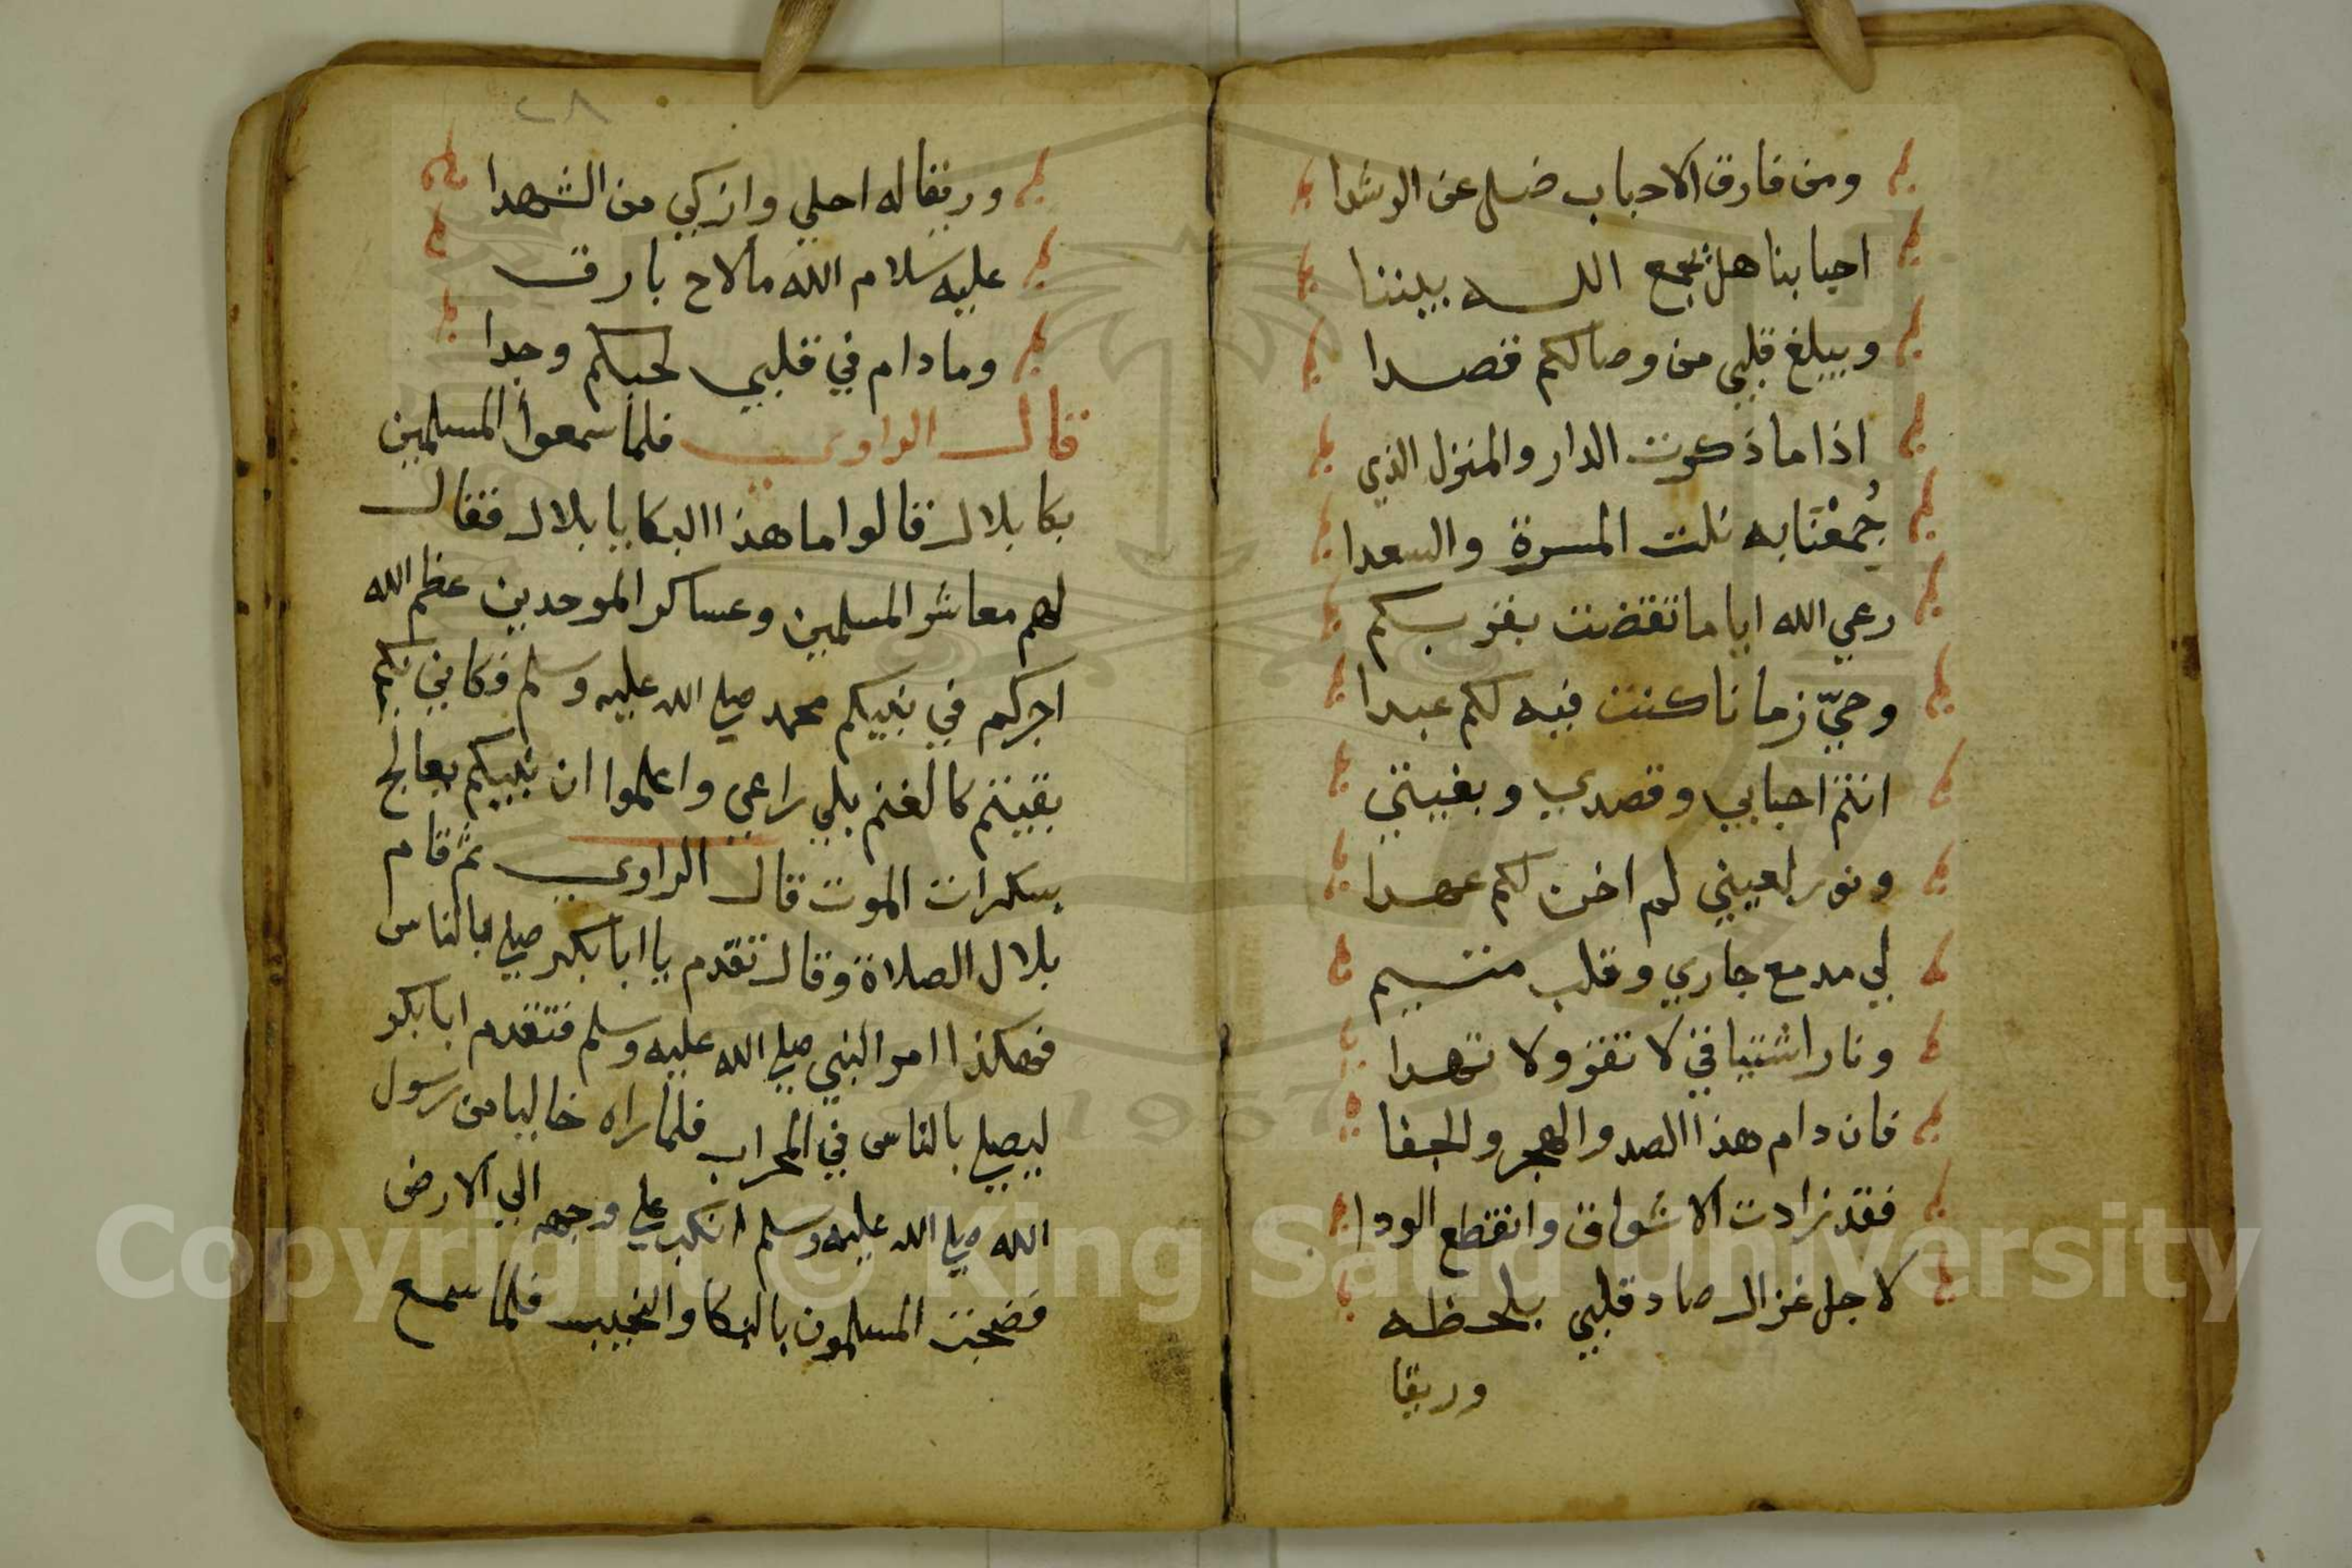 ومن فارق الاحباب ضل عن الرشدا
احبابنا هل يجمع الله بيننا
ويبلغ قلبي من وصالكم قصدا
اذا ما ذكرت الدار والمنزل الذي
جُمعْنَا به نلت المسرة والسعدا
رعي الله اياما تقضت بقربكم
وحيّ زمانا كنت فيه لكم عبدا
انتم احبابي وقصدي وبغيتي
ونور لعيني لم اخن لكم عهدا
لي مدمع جاري وقلب متيم
ونار اشتياقي لا تقر ولا تهدا
فان دام هذا الصد والهجر والجفا
فقد زادت الاشواق وانقطع الودا
لاجل غزال صاد قلبي بلحظه
وريقا
٢٨
وريقا له احلي وازكي من الشهدا
عليه سلام الله ما لاح بارق
وما دام في قلبي لحبكم وجدا
قال الراوي فلما سمعوا المسلمين
بكا بلال قالوا ما هذا البكا يا بلال فقال
لهم معاشر المسلمين وعساكر الموحدين عظم الله
اجركم في نبيكم محمد صلي الله عليه وسلم فكاني بكم
بقيتم كالغنم بلي راعي واعلموا ان نبيكم يعالج
بسكرات الموت قال الراوي ثم قام
بلال الصلاة وقال تقدم يا ابا بكر صلي بالناس
فهكذا امر النبي صلي الله عليه وسلم فتقدم ابا بكر
ليصلي بالناس في المحراب فلما راه خاليا من رسول
الله صلي الله عليه وسلم انكب علي وجهه الي الارض
فضجت المسلمون بالبكا والنحيب فلما سمع
Copyright © King Saud University
1957